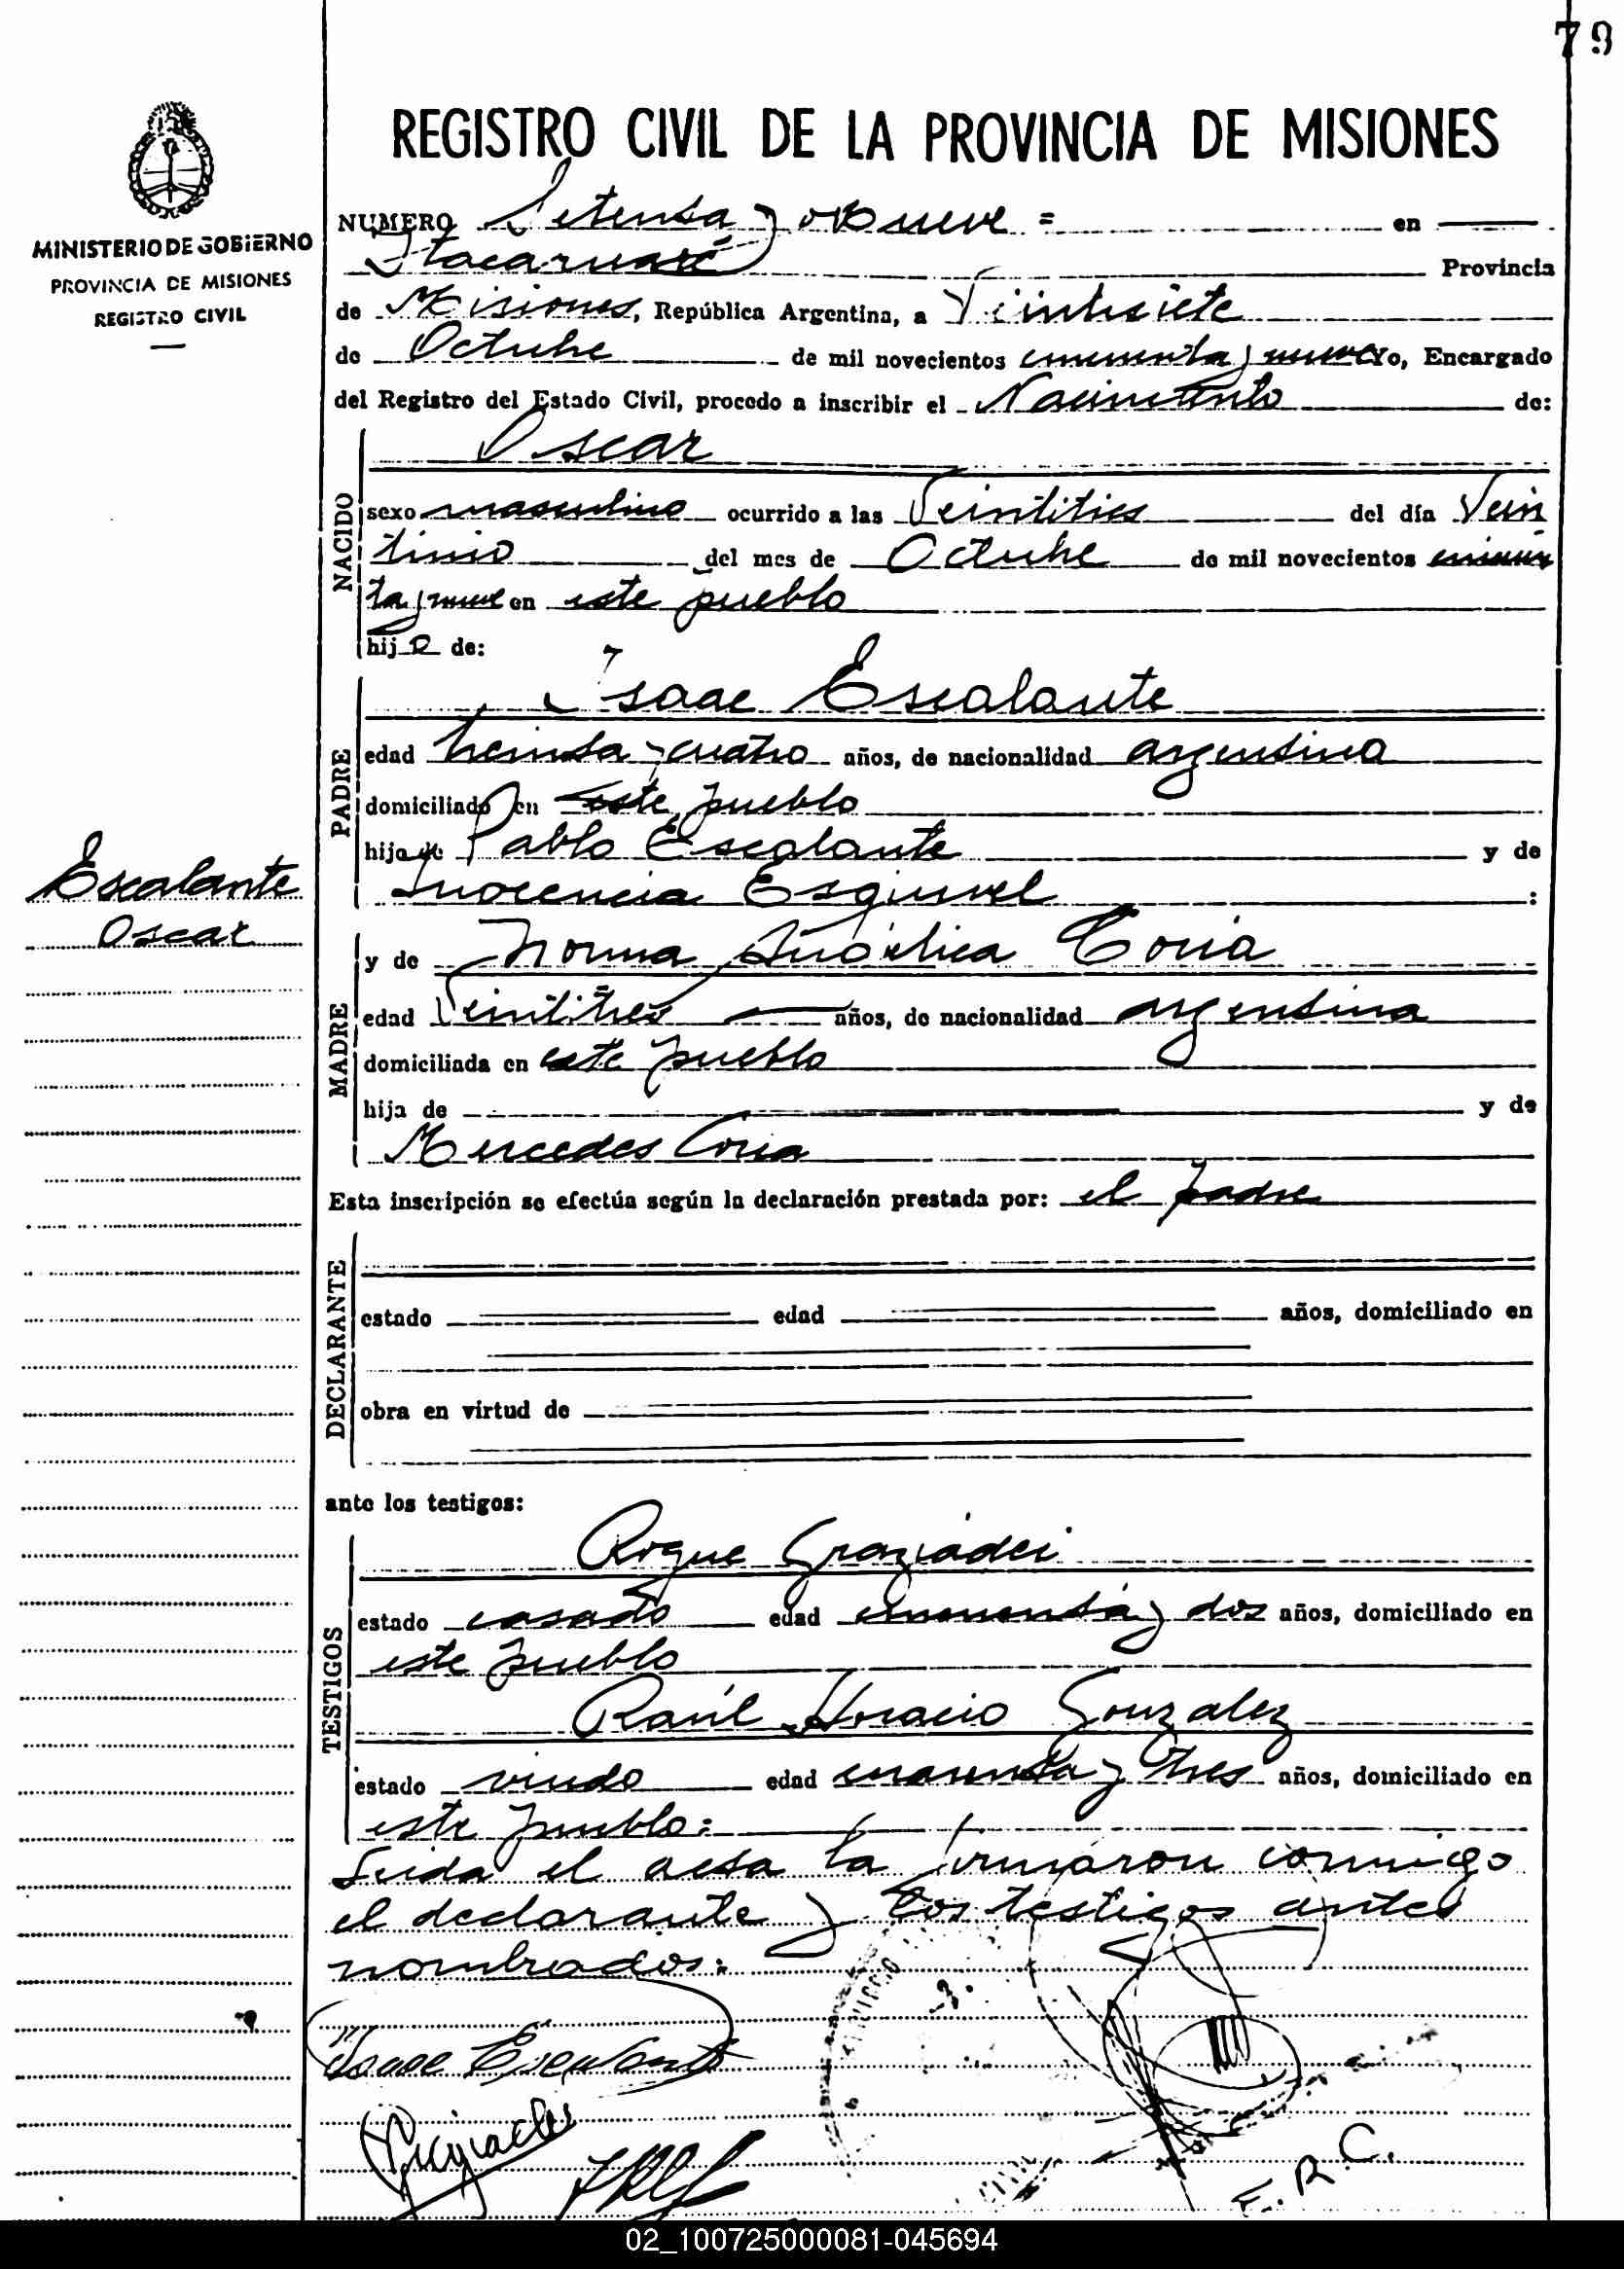 79
REGISTRO CIVIL DE LA PROVINCIA DE MISIONES
MINISTERIO DE GOBIERNO
PROVINCIA DE MISIONES
REGISTRO CIVIL
NUMERO Setenta y nueve = en
Itacaruaré Provincia
de Misiones, República Argentina, a Veintisiete
de Octubre de mil novecientos cincuenta y nueve Yo, Encargado
del Registro del Estado Civil, procedo a inscribir el Nacimiento de:
NACIDO
Oscar
sexo masculino ocurrido a las Veintitres del día Vein
tiuno del mes de Octubre de mil novecientos cincuen
ta y nueve en este pueblo
hijo de:
PADRE
Isaac Escalante
edad treinta y cuatro años, de nacionalidad argentina
domiciliado en este pueblo
hijo de Pablo Escalante y de
Inocencia Esquivel :
Escalante
Oscar
MADRE
y de Norma Angélica Coria
edad Veintitres años, de nacionalidad argentina
domiciliada en este pueblo
hija de y de
Mercedes Coria
Esta inscripción se efectúa según la declaración prestada por: el padre
DECLARANTE
estado edad años, domiciliado en
obra en virtud de
ante los testigos:
TESTIGOS
Roque Graziadei
estado casado edad cincuenta y dos años, domiciliado en
este pueblo
Raúl Horacio Gonzalez
estado viudo edad cuarenta y tres años, domiciliado en
este pueblo:
Leida el acta la firmaron conmigo
el declarante y los testigos antes
nombrados:
Isaac Escalante
E.R.C.
02_100725000081-045694